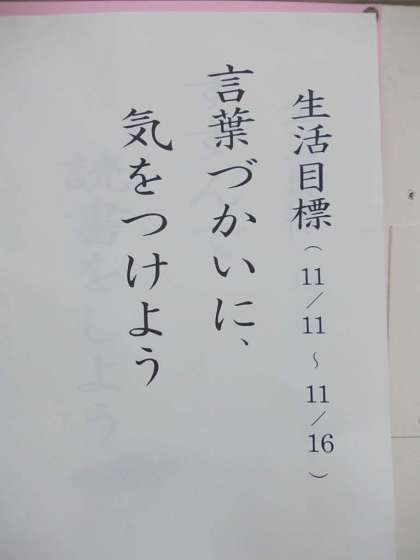 生活目標(11/11～11/16)
言葉づかいに、
気をつけよう